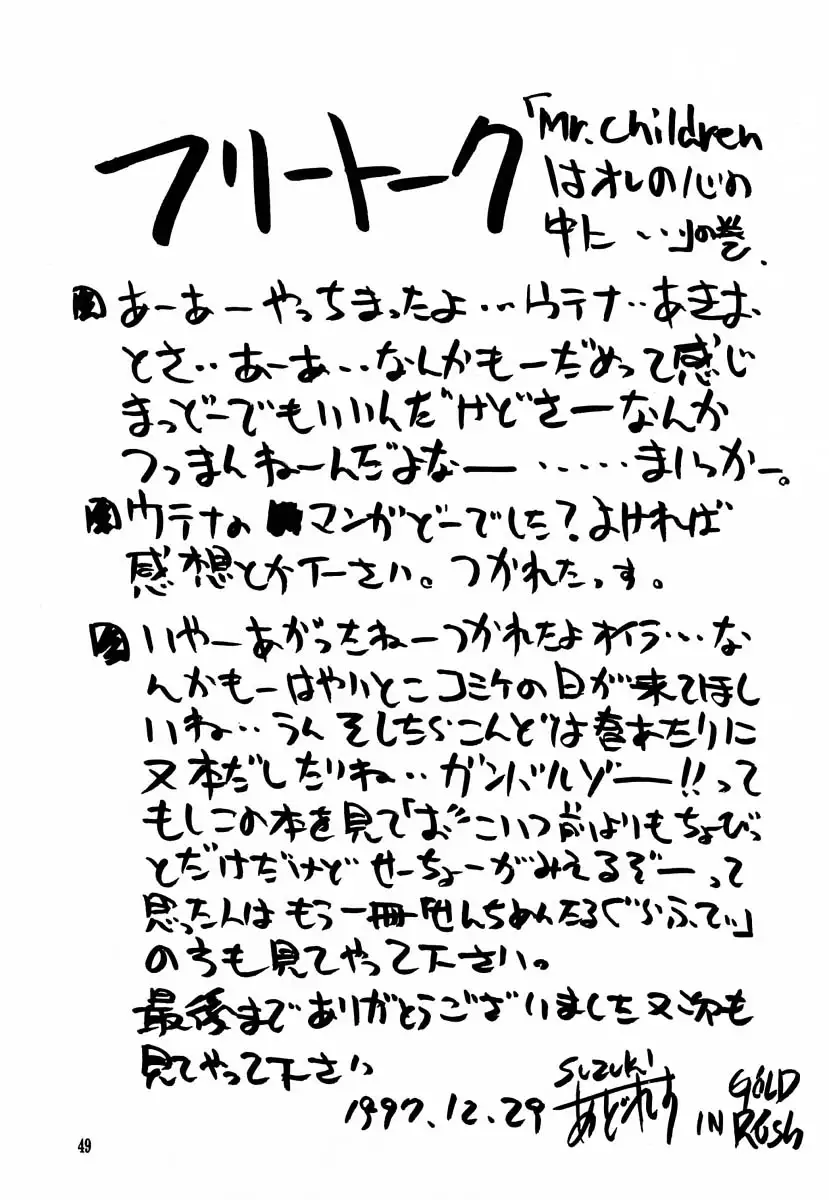 フリートーク
「Mr.Children
はオレの心の
中に・・・」の巻.
あーあーやっちまったよ・・・ウテナ・・あきお
とさ・・あーあ・・・なんかもーだめって感じ
まっどーでもいいんだけどさーなんか
つっまんねーんだよなー・・・・・まいっかー。
ウテナの マンガどーでした?よければ
感想とか下ーさい。つかれたっす。
いやーあがったねーつかれたよオイラ・・・な
んかもーはやいとこコミケの日が来てほし
いね・・うん そしたらこんどは春あたりに
又本だしたいね・・ガンバルゾー!!って
もしこの本を見て「お"こいつ前よりもちょびっ
とだけだけど せーちょーがみえるぞーって
思った人は もう一冊「せんちめんたるぐらふてぃ」
のちも見てやって下さい。
最後までありがとうございました又次も
見てやって下さい
1997.12.29
suzuki
あどれす
GOLD
IN RUSh
49